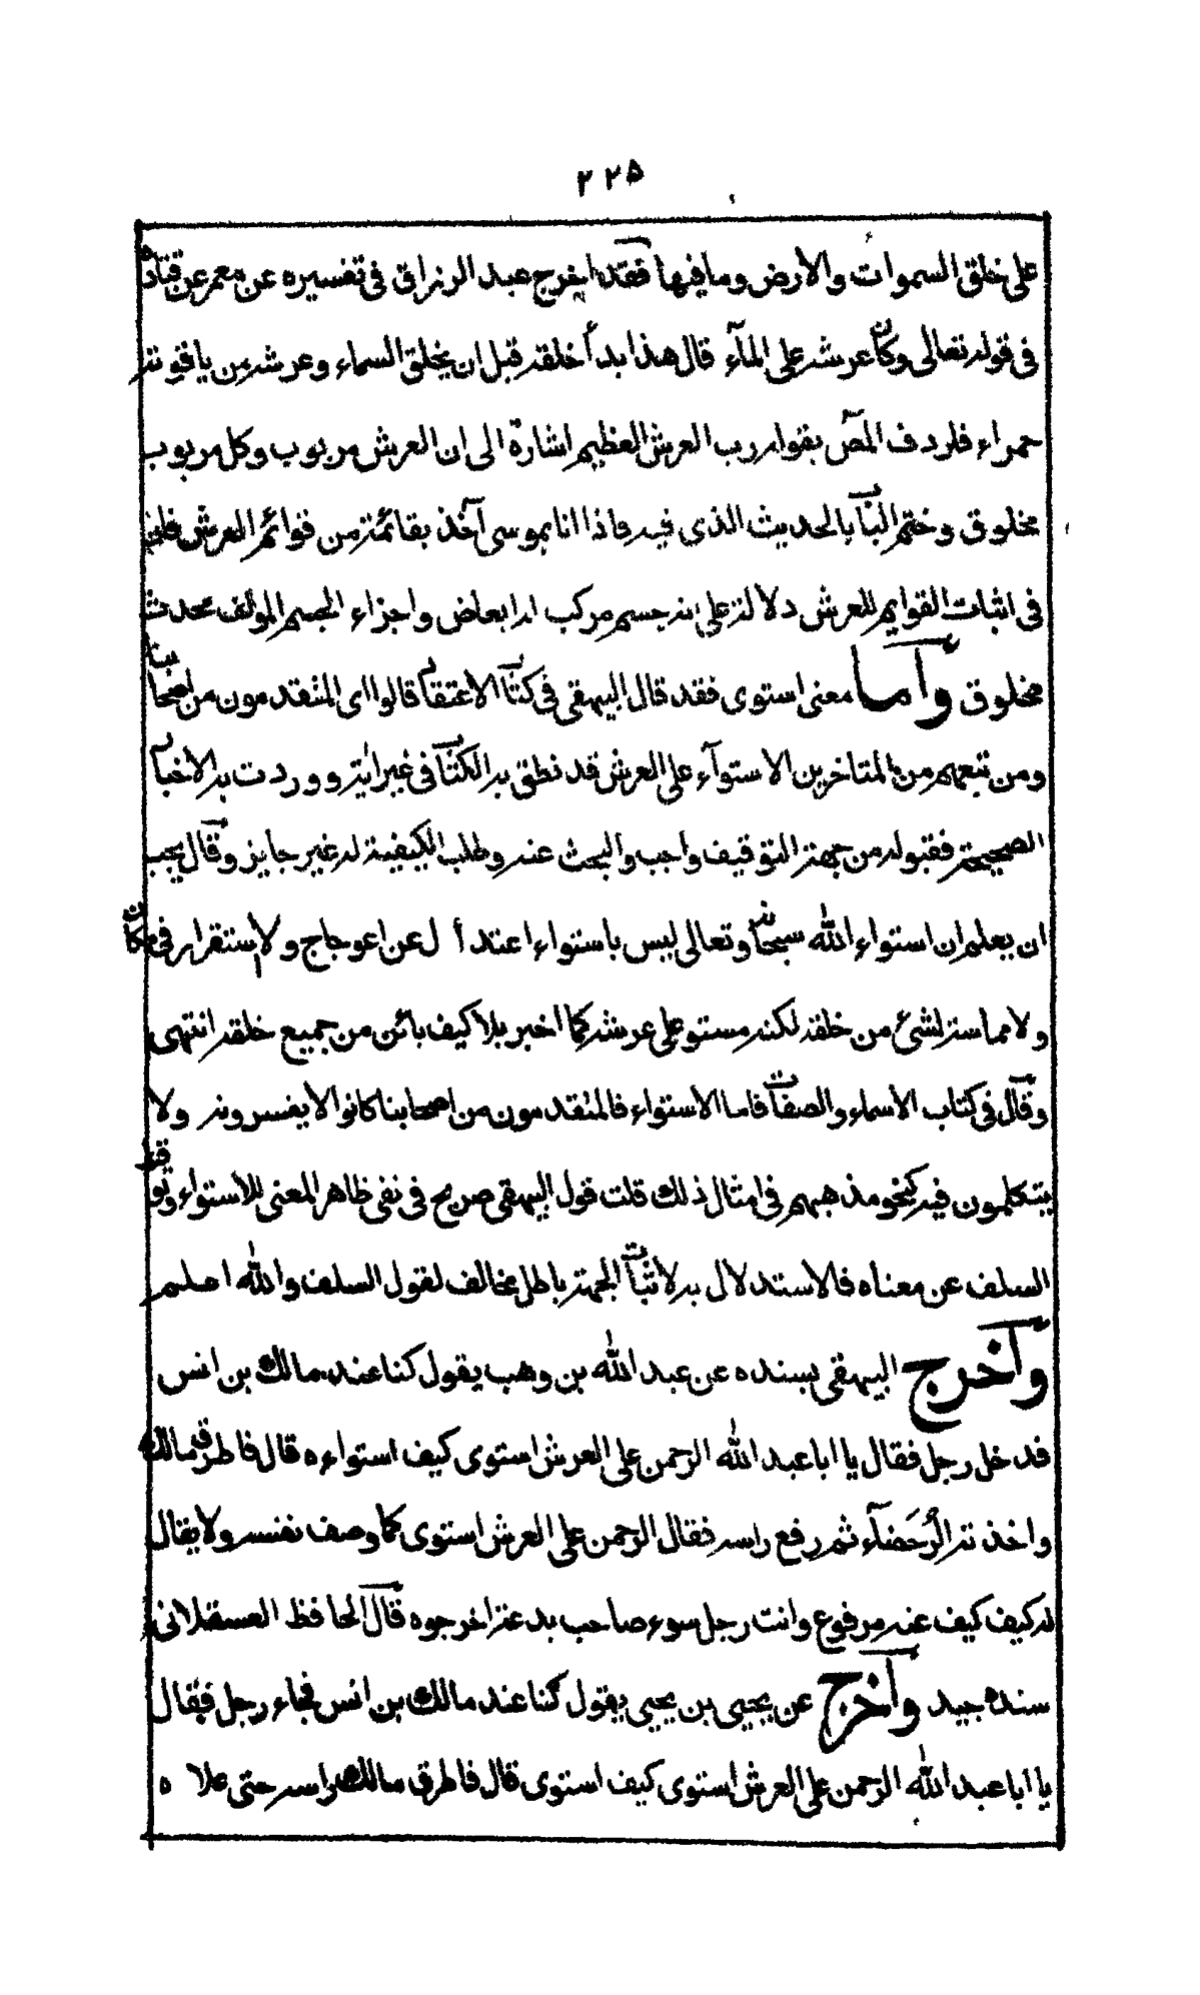 ٢٢٥
على خلق السموات والارض وما فيها فقد اخرج عبد الرزاق فى تفسيره عن معمر عن قتادة
فى قوله تعالى وكان عرشه على المآء قال هذا بدأ خلقه قبل ان يخلق السماء وعرشه من ياقوتة
حمراء فاردف المصّ بقوله رب العرش العظيم اشارة الى ان العرش مربوب وكل مربوب
مخلوق وختم الباب بالحديث الذى فيه فاذا انا بموسى آخذ بقائمة من قوائم العرش فان
فى اثبات القوايم للعرش دلالة على انه جسم مركب له ابعاض واجزاء الجسم المؤلف محدث
مخلوق وآما معنى استوى فقد قال البيهقى فى كتاب الاعتقاد قالوا اى المتقدمون من اصحابنا
ومن تبعهم من المتاخرين الاستوآء على العرش قد نطق به الكتاب فى غير اية ووردت به الاخبار
الصحيحة فقبوله من جهة التوقيف واجب والبحث عنه وطلب الكيفية له غير جايز وقال يجب
ان يعلم ان استواء الله سبحانه وتعالى ليس باستواء اعتدال عن اعوجاج ولا استقرار فى مكان
ولا مماسة لشئ من خلقه لكنه مستو على عرشه كما اخبر بلا كيف بائن من جميع خلقه انتهى
وقال فى كتاب الاسماء والصفات فاما الاستواء فالمتقدمون من اصحابنا كانوا لا يفسرونه ولا
يتكلمون فيه كنحو مذهبهم فى امثال ذلك قلت قول البيهقى صريح فى نفى ظاهر المعنى للاستواء وتوقف
السلف عن معناه فالاستدلال به لاثبات الجهة باطل مخالف لقول السلف والله اعلم
وآخرج البيهقى بسنده عن عبد الله بن وهب يقول كنا عند مالك بن انس
فدخل رجل فقال يا ابا عبد الله الرحمن على العرش استوى كيف استواءه قال فاطرق مالك
واخذته الرُحَضآء ثم رفع راسه فقال الرحمن على العرش استوى كما وصف نفسه ولا يقال
له كيف كيف عنه مرفوع وانت رجل سوء صاحب بدعة اخرجوه قال الحافظ العسقلانى
سنده جيد وآخرج عن يحيى بن يحيى يقول كنا عند مالك بن انس فجاء رجل فقال
يا ابا عبد الله الرحمن على العرش استوى كيف استوى قال فاطرق مالك راسه حتى علاه